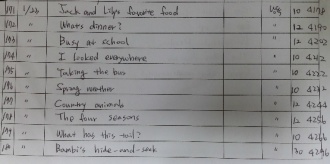 191 1/24 Jack and Lily's favorite food 10 4178
192 " What's dinner? " 12 4190
193 " Busy at school " 12 4202
194 " I looked everywhere " 10 4212
195 " Taking the bus " 10 4222
196 " Spring weather " 10 4232
197 " Country animals " 12 4244
198 " The four seasons " 12 4256
199 " What has this tail? " 10 4266
" Bambi's hide-and-seek " 30 4296